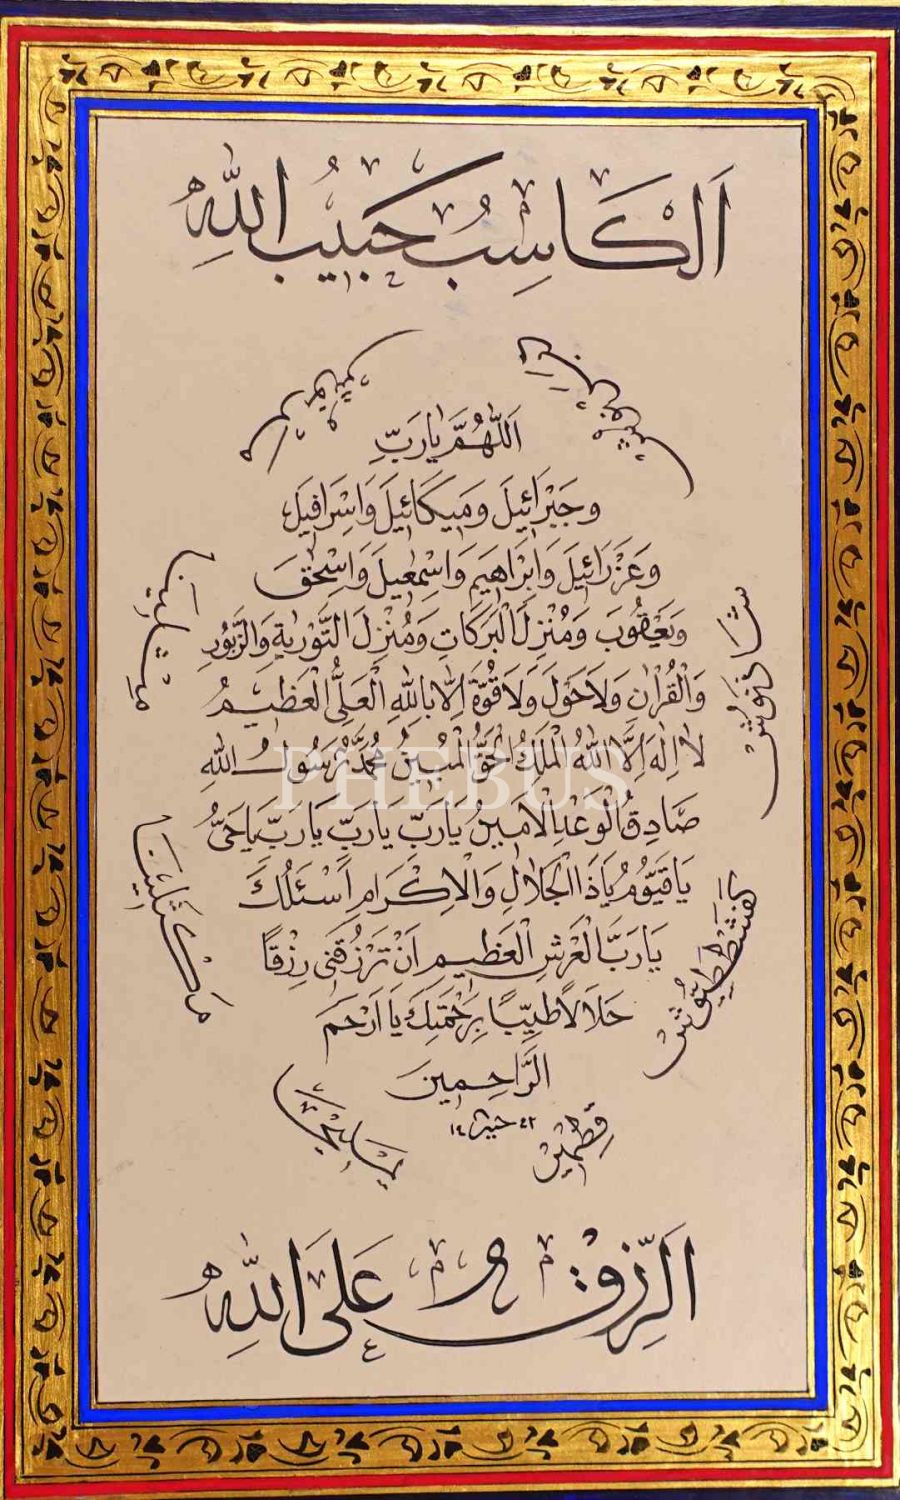 اَلْكَاسِبُ حَبيبُ اللّٰهِ
اَللّٰهُمَّ يَارَبِّ
وَجَبْرَائِيلَ وَمِيكَائِيلَ وَاِسْرَافِيلَ
وَعَزْرَائِيلَ وَاِبْرَاهِيمَ وَاِسْمٰعِيلَ وَاِسْحٰقَ
وَيَعْقُوبَ وَمُنْزِلَ الْبَرَكَاتِ وَمُنْزِلَ التَّوْرٰيةِ وَالزَّبُورِ
وَالْقُرْاٰنِ وَلَاحَوْلَ وَلَاقُوَّةَ اِلَّا بِاللّٰهِ الْعَلِىُّ الْعَظِيمُ
لَا اِلٰهَ اِلَّا اللّٰهُ الْمَلِكُ الْحَقُّ الْمُبِينُ مُحَمَّدٌ رَسُولُ اللّٰهِ
صَادِقُ الْوَعْدِ الْاَمِينُ يَارَبِّ يَارَبِّ يَارَبِّ يَاحَىُّ
يَاقَيُّومُ يَاذَا الْجَلَالِ وَالْاِكْرَامِ اَسْئَلُكَ
يَارَبَّ الْعَرْشِ الْعَظِيمِ اَنْ تَرْزُقَنِى رِزْقًا
حَلَالًا طَيِّبًا بِرَحْمَتِكَ يَا اَرْحَمَ
الرَّاحِمِينَ
يمليخا
مكسلمينا
مثلينا
مرنوش
دبرنوش
شاذنوش
كفشططيوش
قطمير
اَلرِّزْقُ عَلَى اللّٰهِ
PHEBUS